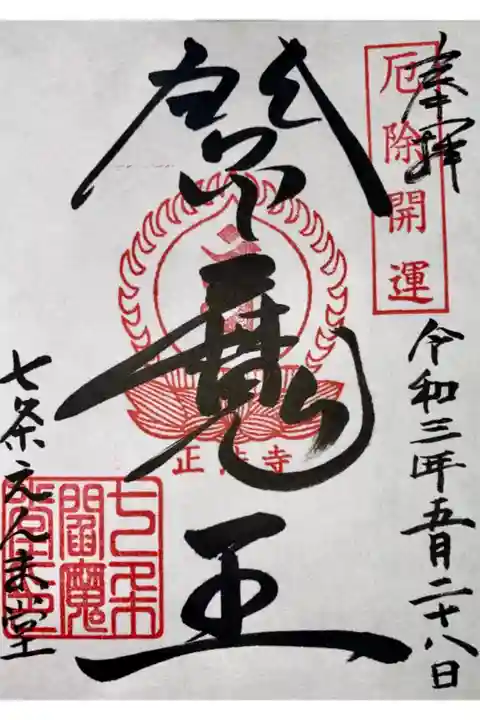 奉拝
厄除開運
令和三年五月二十八日
魔王
正法寺
七条
閻魔
七条えんま堂